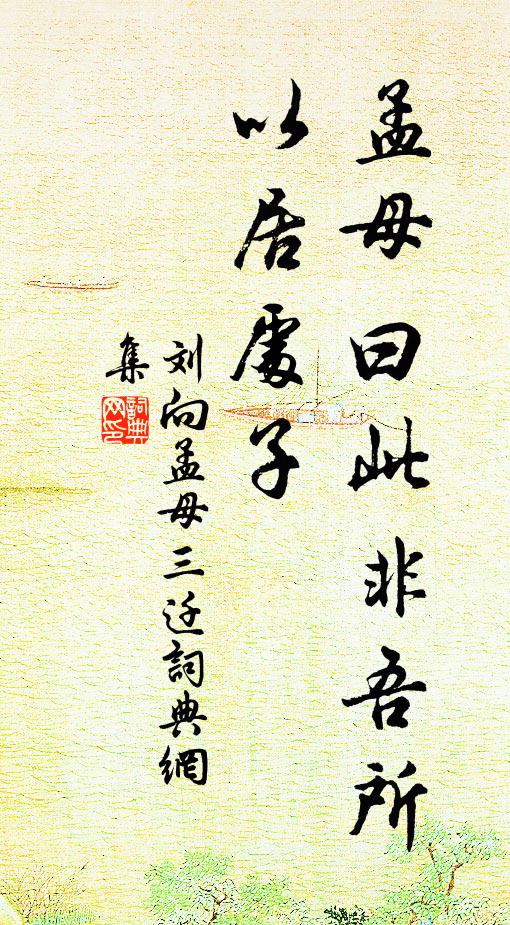 孟母曰此非吾所
以居處子
刘向孟母三迁詞典網
集
詞典
网印